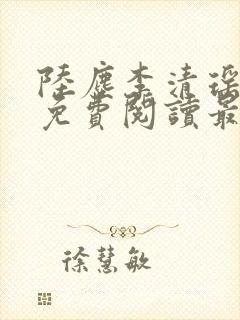 陸塵李清瑤
免費閱讀最
徐慧敏